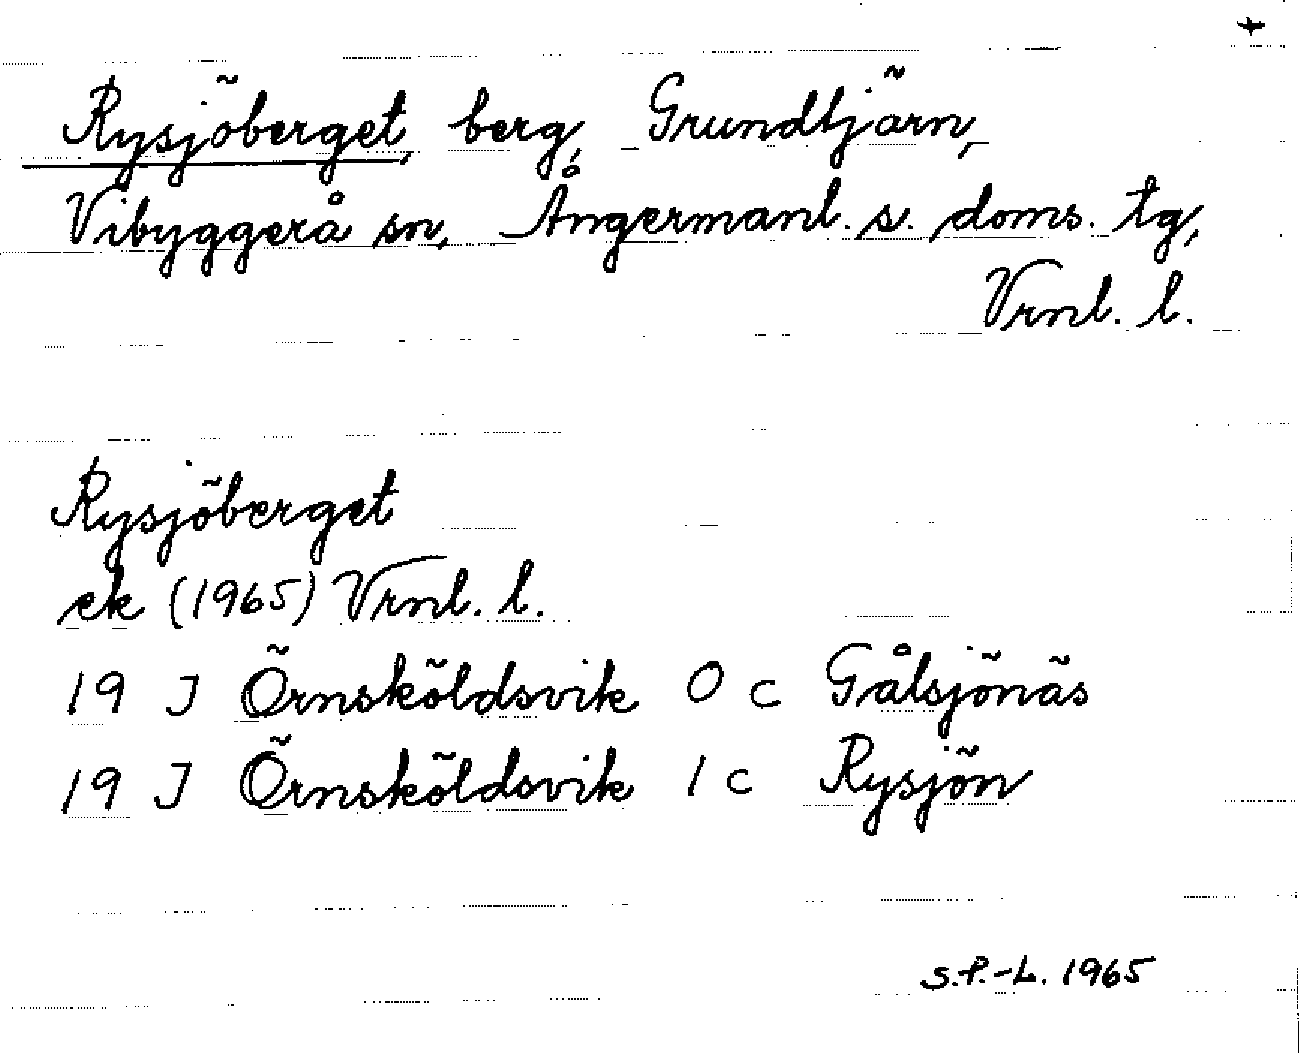 +
Rysjöberget, berg, Grundtjärn,
Vibyggerå sn, Ångermanl. s. doms. tg,
Vrnl. l.
Rysjöberget
ek (1965) Vrnl. l.
19 J Örnsköldsvik 0 c Gålsjönäs
19 J Örnsköldsvik 1 c Rysjön
S.P.-L. 1965